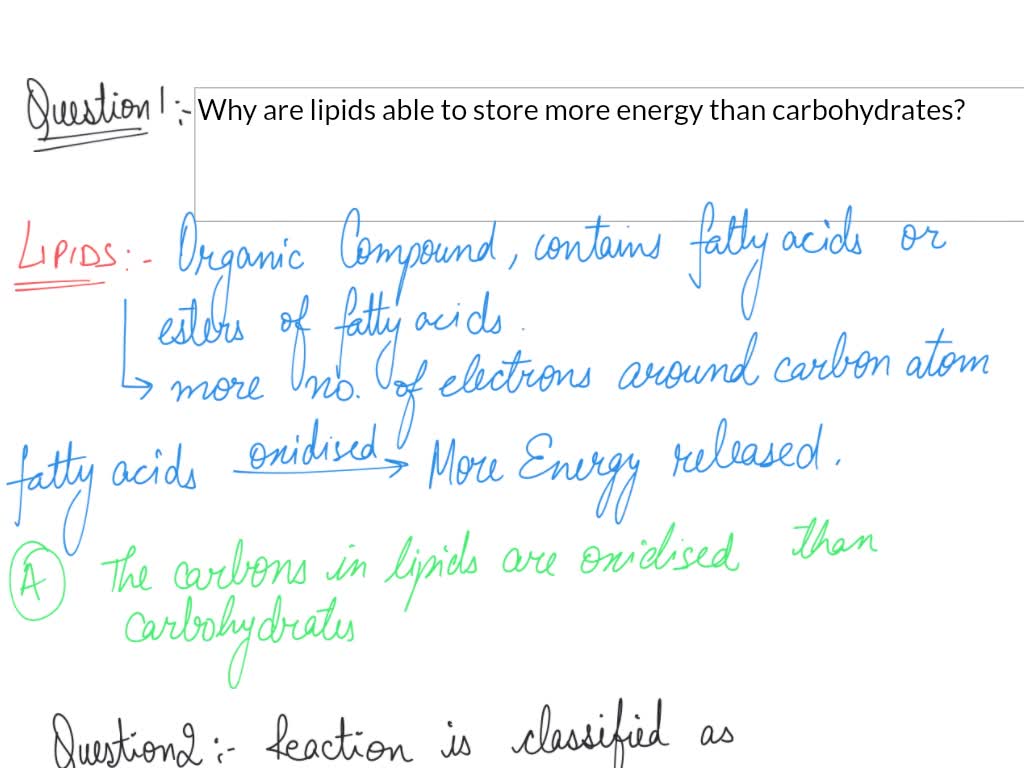 Question 1:- Why are lipids able to store more energy than carbohydrates?
LIPIDS:- Organic Compound, contains fatty acids or
esters of fatty acids.
more no. of electrons around carbon atom
fatty acids onidised → More Energy released.
A The carbons in lipids are onidised than
carbohydrates
Question2:- Reaction is classified as